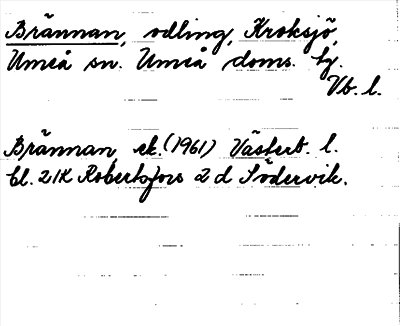 Brännan, odling, Kroksjö,
Umeå sn. Umeå doms. hg.
Vb. l.
Brännan, ek. (1961) Västerb. l.
bl. 21K Robertsfors 2 d Södervik.